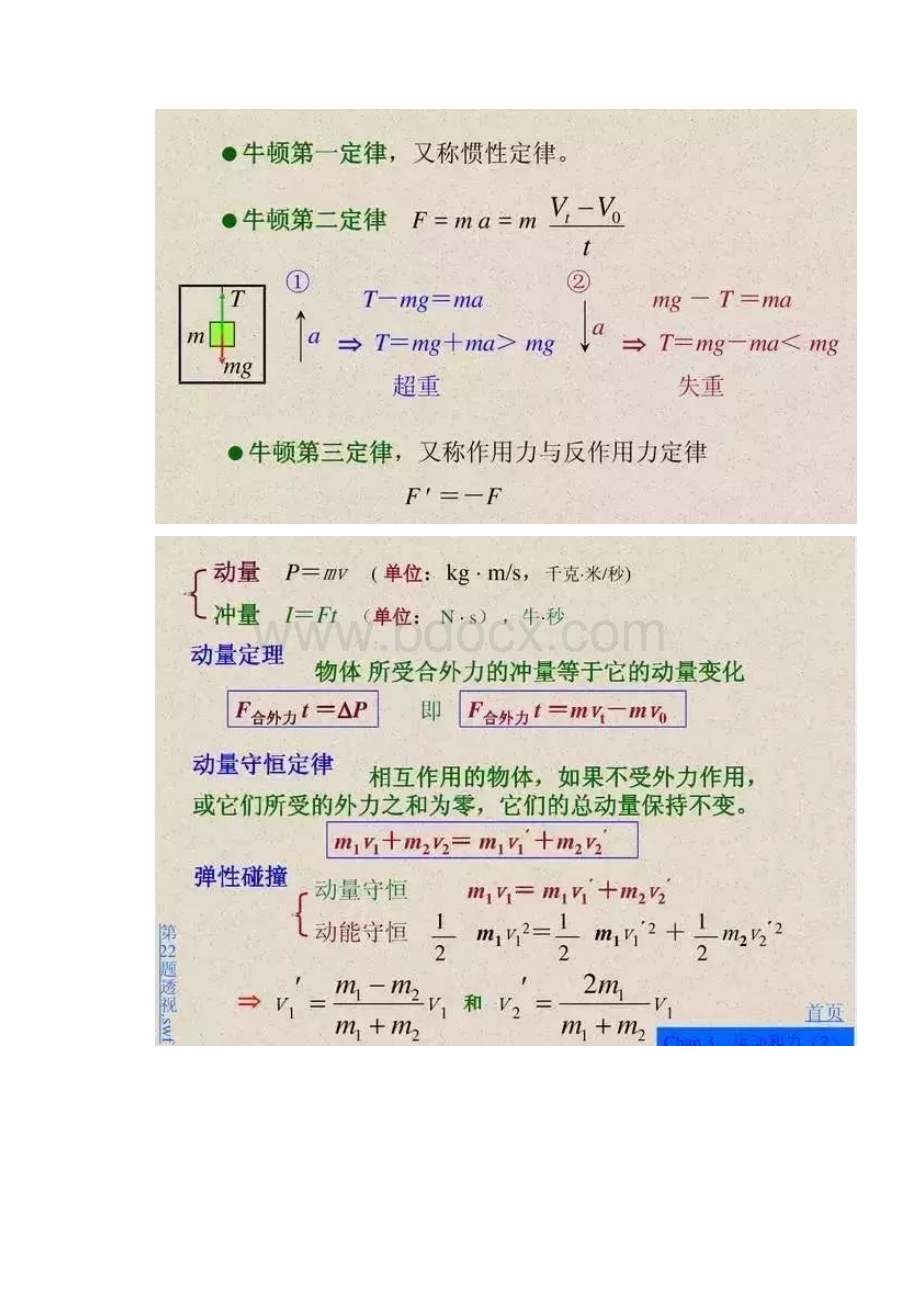 ●牛顿第一定律，又称惯性定律。
●牛顿第二定律 F = m a = m (Vₜ − V₀) / t
① ②
T T－mg＝ma mg － T ＝ma
m a ⇒ T＝mg＋ma＞ mg a ⇒ T＝mg－ma＜ mg
mg
超重 失重
●牛顿第三定律，又称作用力与反作用力定律
F ′ ＝－F
动量 P＝mv （ 单位：kg · m/s，千克·米/秒)
冲量 I＝Ft （单位： N · s），牛·秒
www.bdocx.com
动量定理 物体 所受合外力的冲量等于它的动量变化
F合外力 t ＝ΔP 即 F合外力 t ＝m vₜ－m v₀
动量守恒定律 相互作用的物体，如果不受外力作用，
或它们所受的外力之和为零，它们的总动量保持不变。
m₁ v₁＋m₂ v₂＝ m₁ v₁′ ＋m₂ v₂′
弹性碰撞
动量守恒 m₁ v₁＝ m₁ v₁′＋m₂ v₂′
动能守恒 1/2 m₁ v₁²＝1/2 m₁ v₁′² ＋ 1/2 m₂ v₂′²
⇒ v₁′ = (m₁ − m₂)/(m₁ + m₂) v₁ 和 v₂′ = 2m₁/(m₁ + m₂) v₁
第22题透视.swf
首页